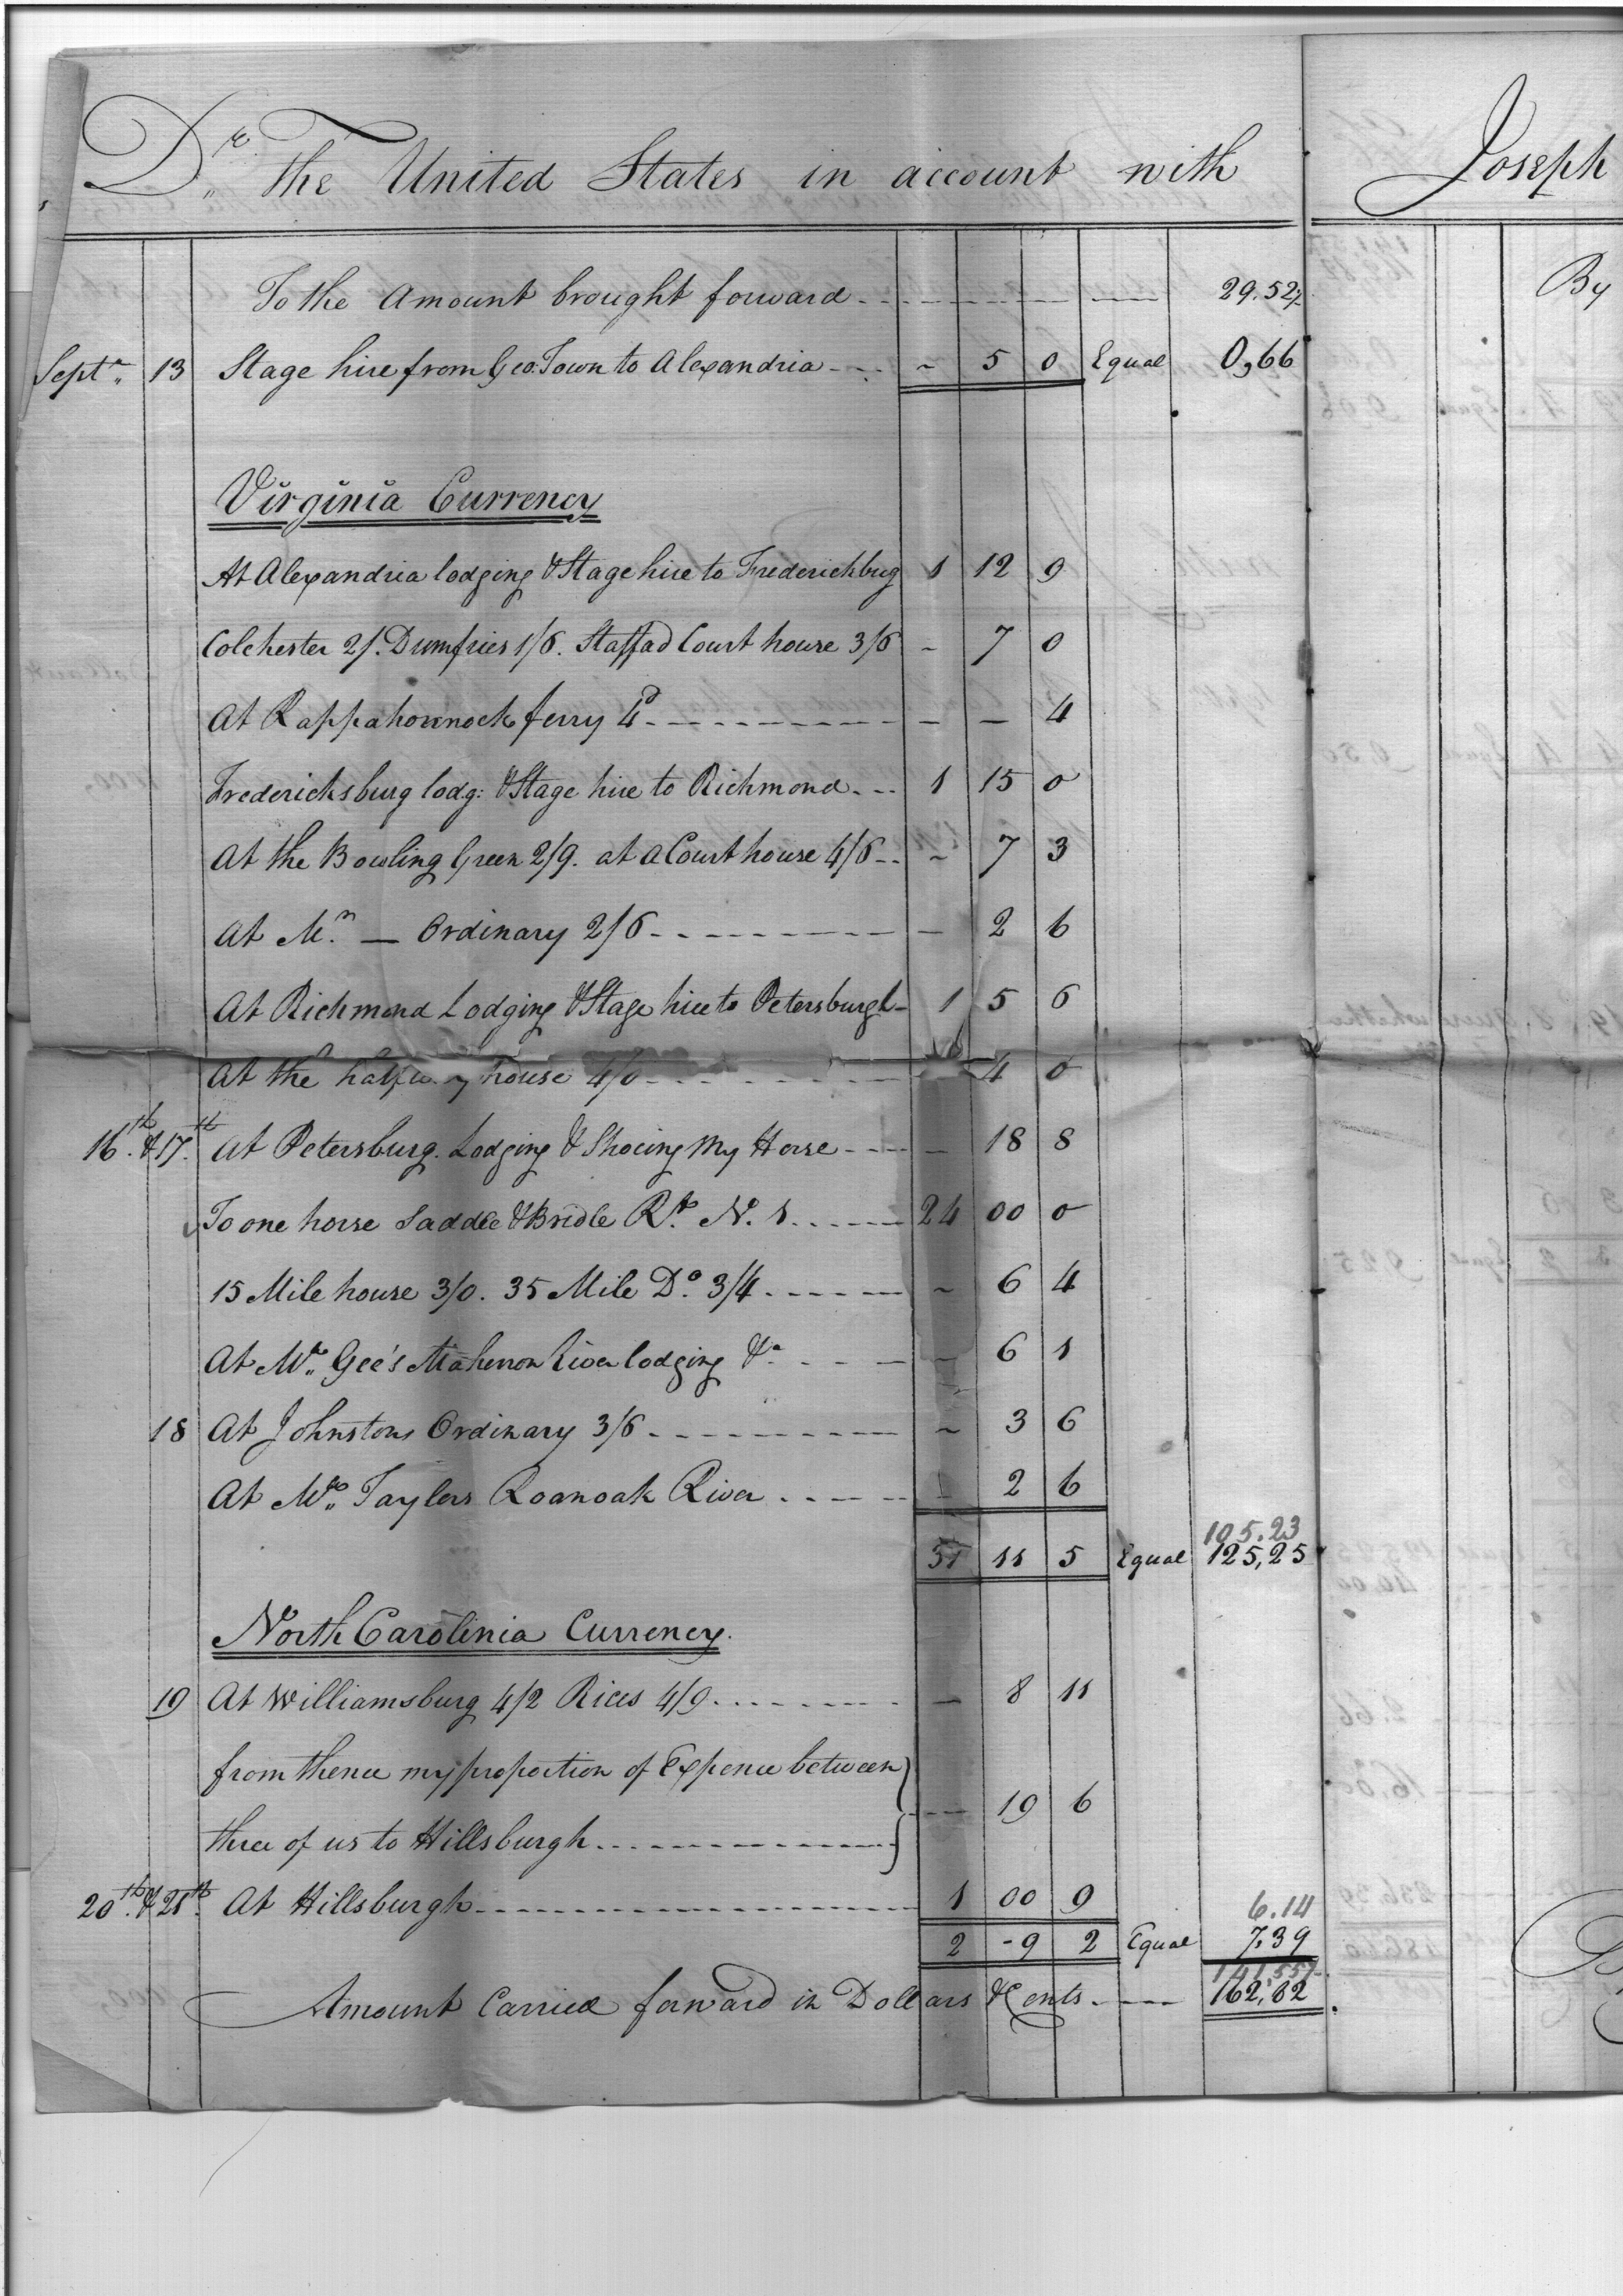 Dr. the United States in account with Joseph
To the Amount brought forward 29.52½ By
Septr. 13 Stage hire from Geo:Town to Alexandria ~ 5 0 Equal 0,66
Virginia Currency
At Alexandria lodging & Stage hire to Frederickburg 1 12 9
Colchester 2/. Dumfries 1/6. Staffad Court house 3/6 - 7 0
At Rappahonnock ferry 4d - - 4
Fredericksburg lodg: & Stage hire to Richmond 1 15 0
At the Bowling Green 2/9. at a Court house 4/6 ~ 7 3
At Mr. — Ordinary 2/6 - 2 6
At Richmond Lodging & Stage hire to Petersburgh 1 5 6
At the halfway house 4/0 - 4 0
16th. & 17th. At Petersburg. Lodging & Shoeing My Horse - 18 8
To one horse Saddle & Bridle Rt. No. 1 24 00 0
15 Mile house 3/0. 35 Mile Do. 3/4 ~ 6 4
At Mr. Gee's Maherron River lodging &a - 6 1
18 At Johnstons Ordinary 3/6 ~ 3 6
At Mrs. Taylers Roanoak River - 2 6
105.23
31 11 5 Equal 125,25
North Carolinia Currency.
19 At Williamsburg 4/2 Rices 4/9 — 8 11
from thence my proportion of Expence between
three of us to Hillsburgh - 19 6
20th. & 21th. At Hillsburgh 1 00 9
6.14
2 - 9 2 Equal 7.39
141.55½
Amount Carried forward in Dollars & Cents 162,82